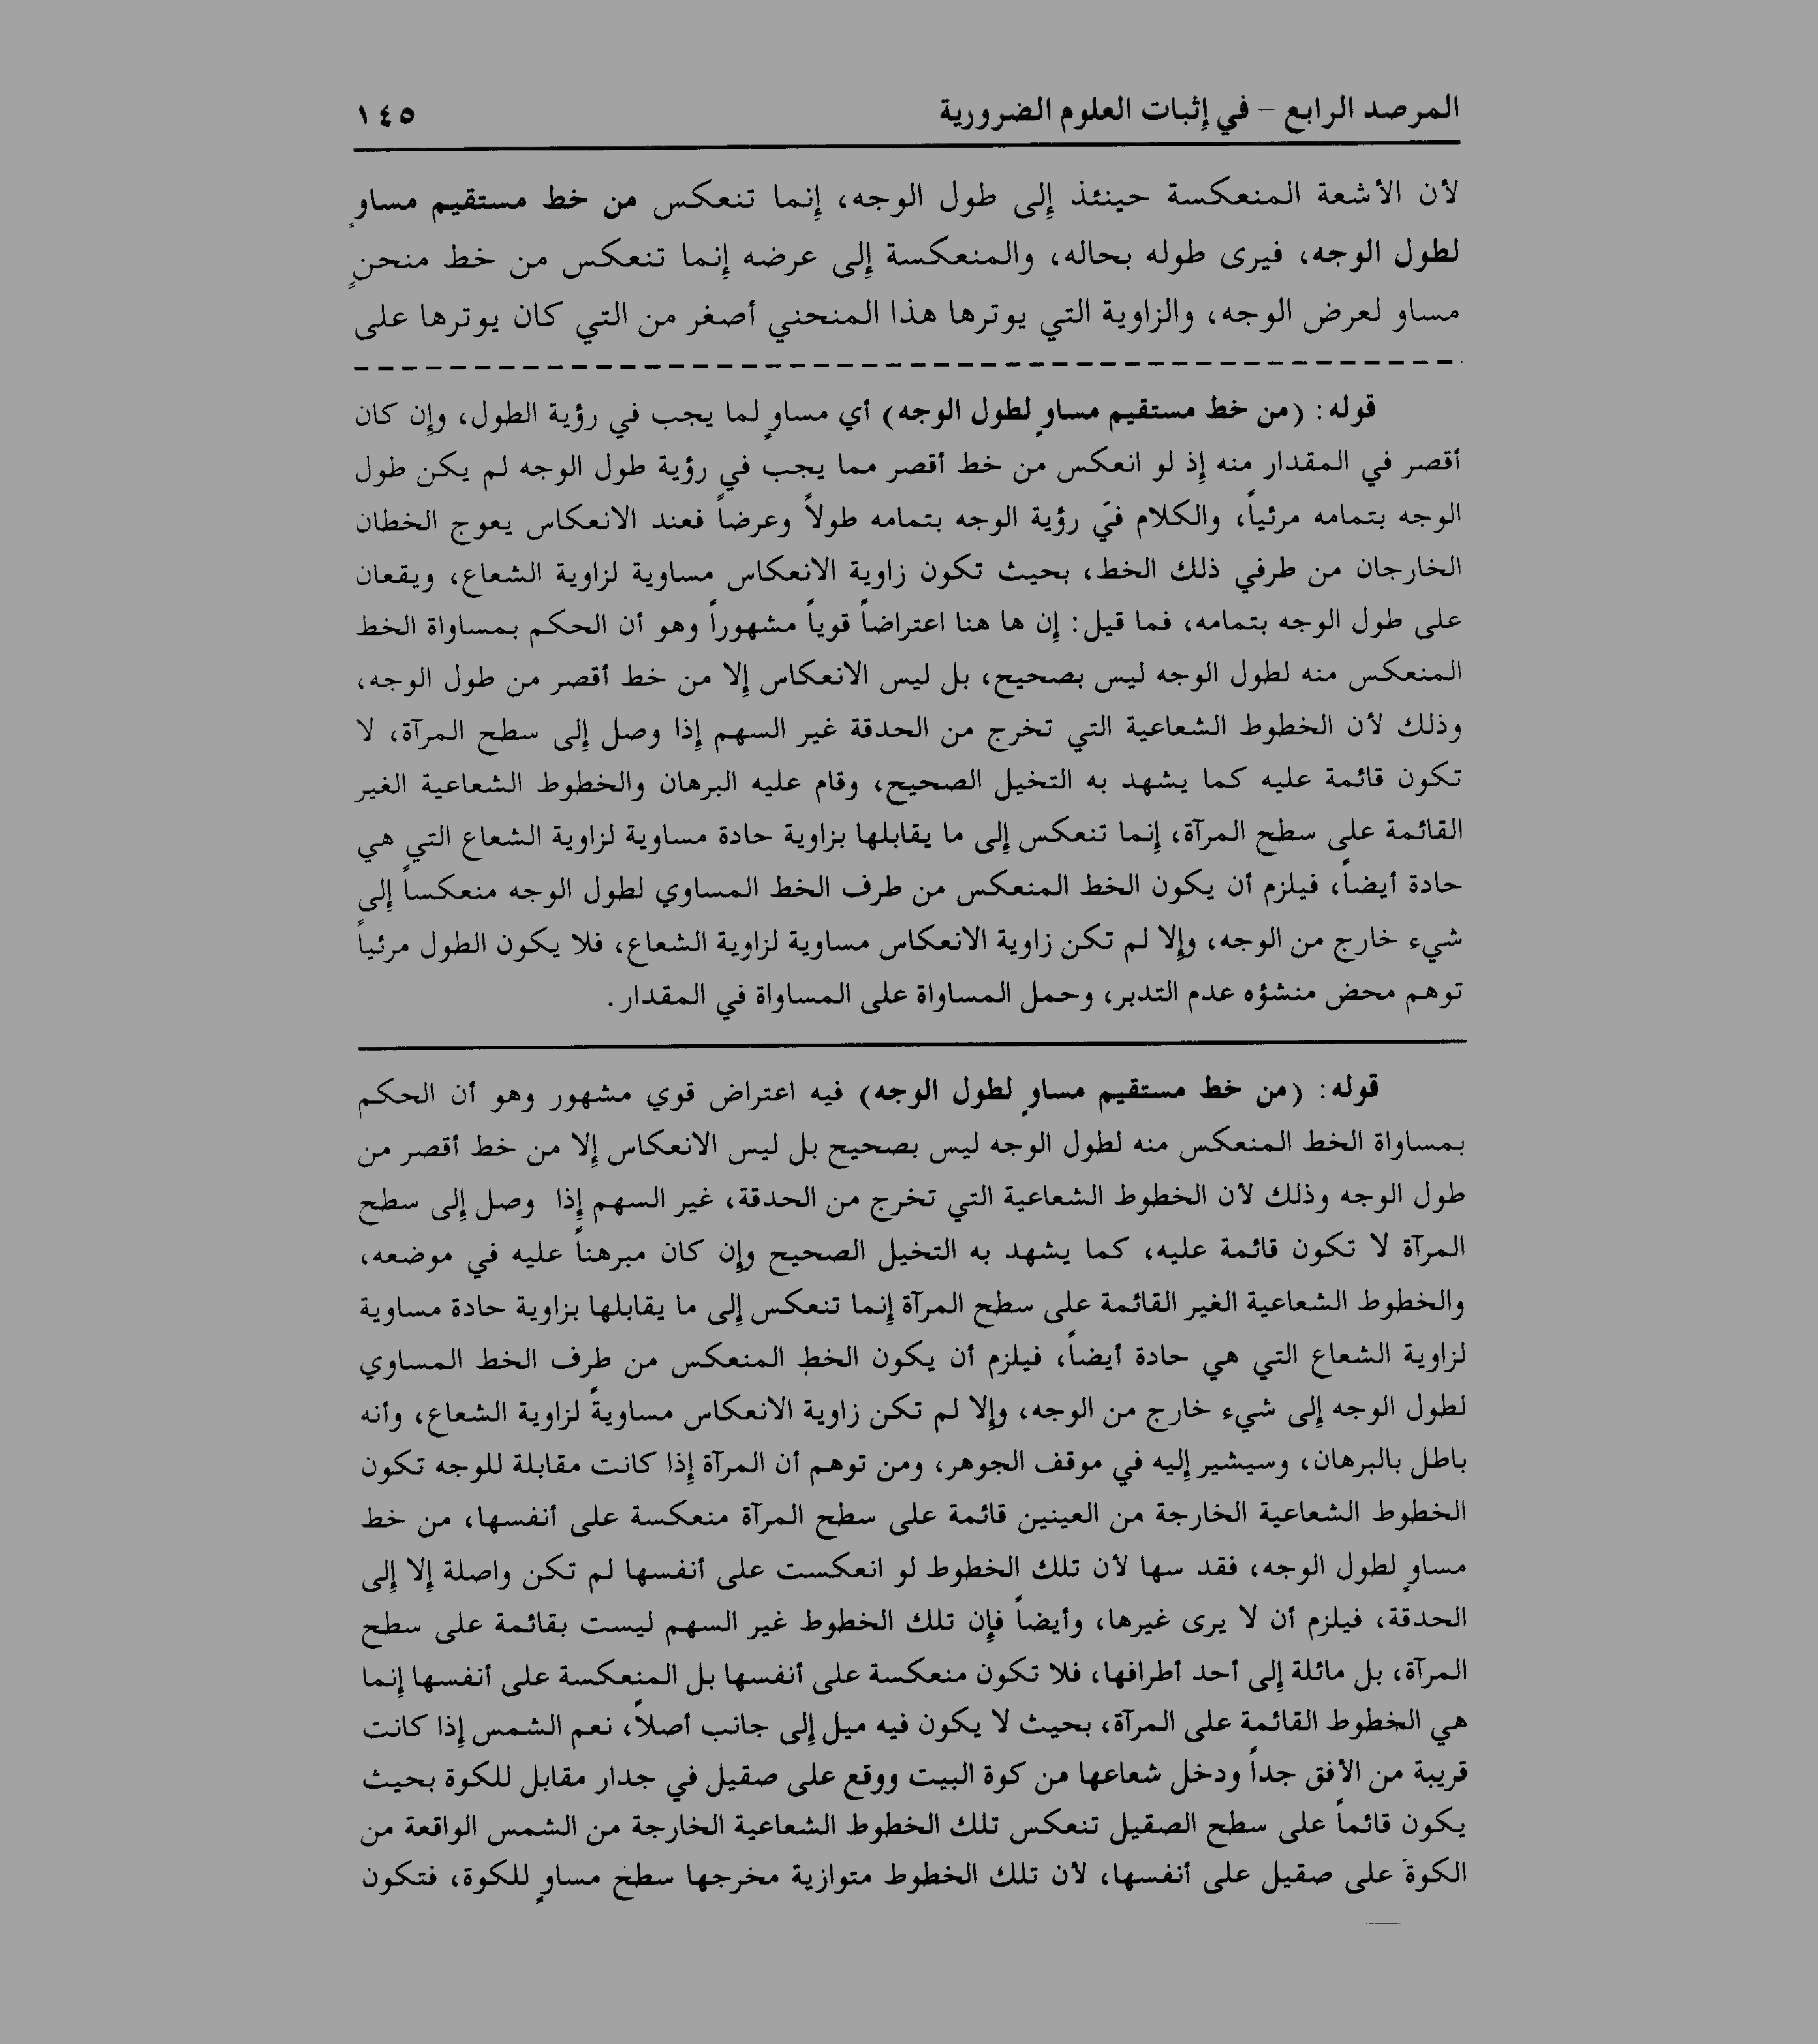 المرصد الرابع – في إثبات العلوم الضرورية ١٤٥
لأن الأشعة المنعكسة حينئذ إلى طول الوجه، إنما تنعكس من خط مستقيم مساوٍ
لطول الوجه، فيرى طوله بحاله، والمنعكسة إلى عرضه إنما تنعكس من خط منحنٍ
مساو لعرض الوجه، والزاوية التي يوترها هذا المنحني أصغر من التي كان يوترها على
قوله: (من خط مستقيم مساوٍ لطول الوجه) أي مساوٍ لما يجب في رؤية الطول، وإن كان
أقصر في المقدار منه إذ لو انعكس من خط أقصر مما يجب في رؤية طول الوجه لم يكن طول
الوجه بتمامه مرئياً، والكلام في رؤية الوجه بتمامه طولاً وعرضاً فعند الانعكاس يعوج الخطان
الخارجان من طرفي ذلك الخط، بحيث تكون زاوية الانعكاس مساوية لزاوية الشعاع، ويقعان
على طول الوجه بتمامه، فما قيل: إن ها هنا اعتراضاً قوياً مشهوراً وهو أن الحكم بمساواة الخط
المنعكس منه لطول الوجه ليس بصحيح، بل ليس الانعكاس إلا من خط أقصر من طول الوجه،
وذلك لأن الخطوط الشعاعية التي تخرج من الحدقة غير السهم إذا وصل إلى سطح المرآة، لا
تكون قائمة عليه كما يشهد به التخيل الصحيح، وقام عليه البرهان والخطوط الشعاعية الغير
القائمة على سطح المرآة، إنما تنعكس إلى ما يقابلها بزاوية حادة مساوية لزاوية الشعاع التي هي
حادة أيضاً، فيلزم أن يكون الخط المنعكس من طرف الخط المساوي لطول الوجه منعكساً إلى
شيء خارج من الوجه، وإلا لم تكن زاوية الانعكاس مساوية لزاوية الشعاع، فلا يكون الطول مرئياً
توهم محض منشؤه عدم التدبر، وحمل المساواة على المساواة في المقدار.
قوله: (من خط مستقيم مساوٍ لطول الوجه) فيه اعتراض قوي مشهور وهو أن الحكم
بمساواة الخط المنعكس منه لطول الوجه ليس بصحيح بل ليس الانعكاس إلا من خط أقصر من
طول الوجه وذلك لأن الخطوط الشعاعية التي تخرج من الحدقة، غير السهم إذا وصل إلى سطح
المرآة لا تكون قائمة عليه، كما يشهد به التخيل الصحيح وإن كان مبرهناً عليه في موضعه،
والخطوط الشعاعية الغير القائمة على سطح المرآة إنما تنعكس إلى ما يقابلها بزاوية حادة مساوية
لزاوية الشعاع التي هي حادة أيضاً، فيلزم أن يكون الخط المنعكس من طرف الخط المساوي
لطول الوجه إلى شيء خارج من الوجه، وإلا لم تكن زاوية الانعكاس مساويةً لزاوية الشعاع، وأنه
باطل بالبرهان، وسيشير إليه في موقف الجوهر، ومن توهم أن المرآة إذا كانت مقابلة للوجه تكون
الخطوط الشعاعية الخارجة من العينين قائمة على سطح المرآة منعكسة على أنفسها، من خط
مساوٍ لطول الوجه، فقد سها لأن تلك الخطوط لو انعكست على أنفسها لم تكن واصلة إلا إلى
الحدقة، فيلزم أن لا يرى غيرها، وأيضاً فإن تلك الخطوط غير السهم ليست بقائمة على سطح
المرآة، بل مائلة إلى أحد أطرافها، فلا تكون منعكسة على أنفسها بل المنعكسة على أنفسها إنما
هي الخطوط القائمة على المرآة، بحيث لا يكون فيه ميل إلى جانب أصلاً، نعم الشمس إذا كانت
قريبة من الأفق جداً ودخل شعاعها من كوة البيت ووقع على صقيل في جدار مقابل للكوة بحيث
يكون قائماً على سطح الصقيل تنعكس تلك الخطوط الشعاعية الخارجة من الشمس الواقعة من
الكوة على صقيل على أنفسها، لأن تلك الخطوط متوازية مخرجها سطح مساوٍ للكوة، فتكون